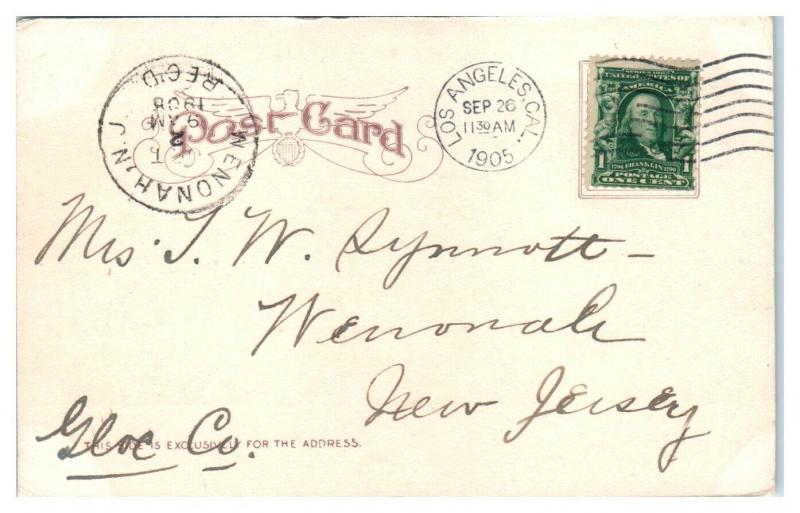 Post Card
LOS ANGELES, CAL.
SEP 26
11 30 AM
1905
WENONAH, N.J.
REC'D
9 AM
UNITED STATES OF
AMERICA
1 FRANKLIN 1
POSTAGE
ONE CENT
Mrs. T. W. Synnott
Wenonah
New Jersey
Gloc Co.
THIS SIDE IS EXCLUSIVELY FOR THE ADDRESS.